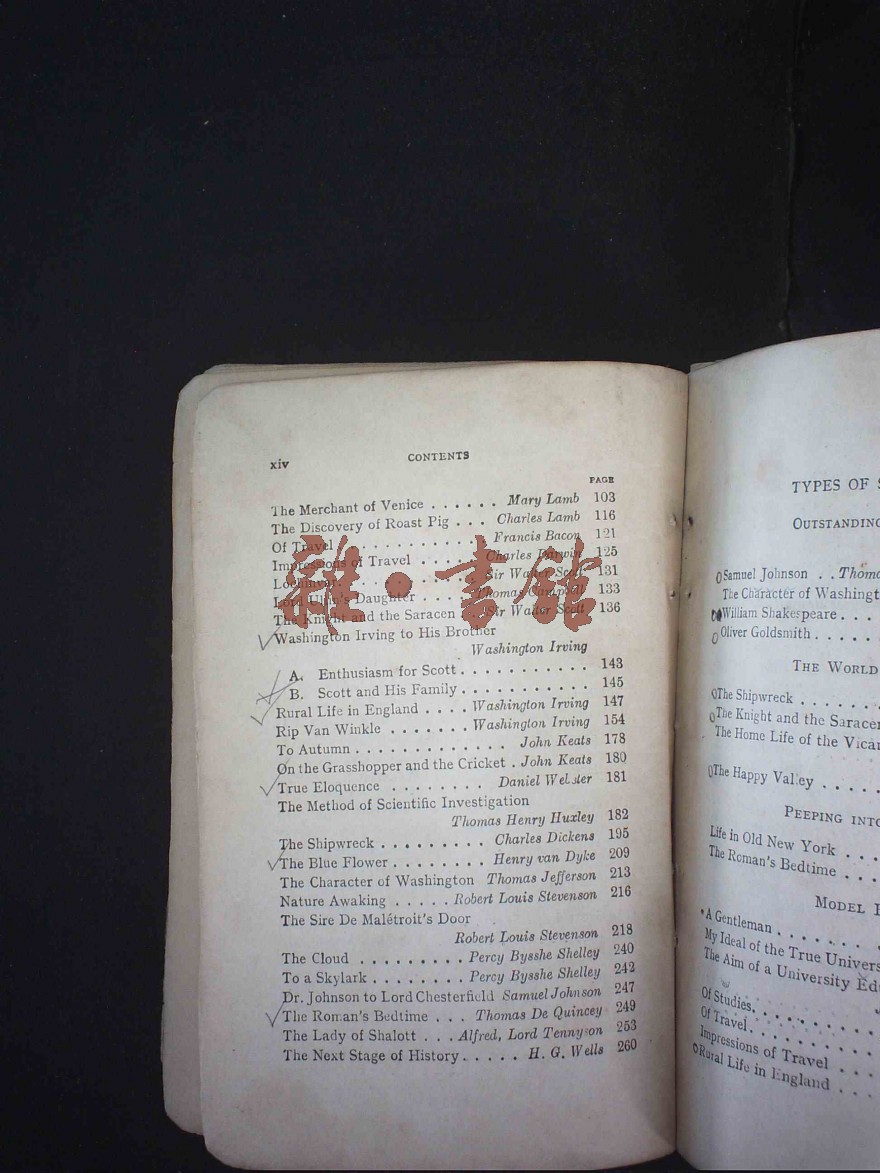 xiv CONTENTS
PAGE
The Merchant of Venice . . . . . . Mary Lamb 103
The Discovery of Roast Pig . . . Charles Lamb 116
Of Travel . . . . . . . . . . . Francis Bacon 121
Impressions of Travel . . . . . Charles Darwin 125
Lochinvar . . . . . . . . . . Sir Walter Scott 131
Lord Ullin's Daughter . . . . Thomas Campbell 133
The Knight and the Saracen . . Sir Walter Scott 136
Washington Irving to His Brother
Washington Irving
A. Enthusiasm for Scott . . . . . . . . . . . 143
B. Scott and His Family . . . . . . . . . . . 145
Rural Life in England . . . . Washington Irving 147
Rip Van Winkle . . . . . . . Washington Irving 154
To Autumn . . . . . . . . . . . . . John Keats 178
On the Grasshopper and the Cricket . John Keats 180
True Eloquence . . . . . . . . Daniel Webster 181
The Method of Scientific Investigation
Thomas Henry Huxley 182
The Shipwreck . . . . . . . . . Charles Dickens 195
The Blue Flower . . . . . . . . Henry van Dyke 209
The Character of Washington Thomas Jefferson 213
Nature Awaking . . . . . Robert Louis Stevenson 216
The Sire De Malétroit's Door
Robert Louis Stevenson 218
The Cloud . . . . . . . . . Percy Bysshe Shelley 240
To a Skylark . . . . . . . . Percy Bysshe Shelley 242
Dr. Johnson to Lord Chesterfield Samuel Johnson 247
The Roman's Bedtime . . . Thomas De Quincey 249
The Lady of Shalott . . . Alfred, Lord Tennyson 253
The Next Stage of History . . . . . H. G. Wells 260
雜·書館
TYPES OF
OUTSTANDING
Samuel Johnson . .
The Character of
William Shakespeare . . .
Oliver Goldsmith . . . .
THE WORLD
The Shipwreck . . . . . . .
The Knight and the
The Home Life of the
The Happy Valley . . . .
PEEPING
Life in Old New York . . .
The Roman's Bedtime . . .
MODEL
A Gentleman . . . . . . .
My Ideal of the True
The Aim of a University
Of Studies. . . . . . . . .
Of Travel . . . . . . . . .
Impressions of Travel . . .
Rural Life in England . . .